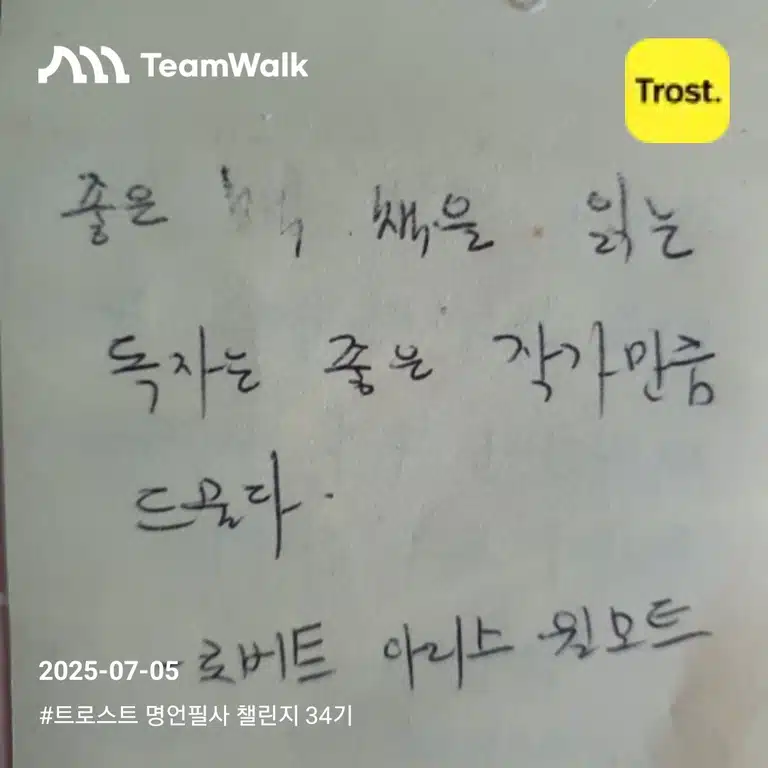 TeamWalk
Trost.
좋은 책을 읽는
독자는 좋은 작가만큼
드물다.
- 로버트 아리스 윌모트
2025-07-05
#트로스트 명언필사 챌린지 34기